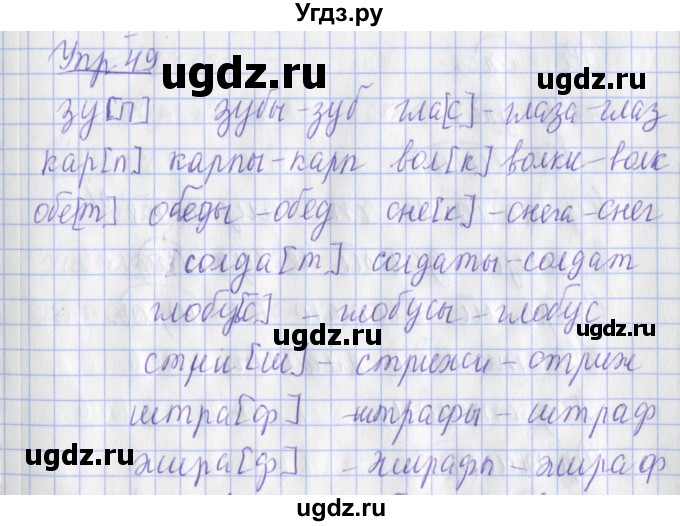 Угдз.ру
Упр 49
зу[п] зубы-зуб гла[с] - глаза-глаз
кар[п] карпы-карп вол[к] волки-волк
обе[т] обеды-обед сне[к] -снега-снег
солда[т] солдаты-солдат
глобу[с] - глобусы - глобус
стри[ш] - стрижи - стриж
штра[ф] - штрафы - штраф
жира[ф] - жирафы - жираф
ugdz.ru
ugdz.ru
ugdz.ru
ugdz.ru
ugdz.ru
ugdz.ru
ugdz.ru
ugdz.ru